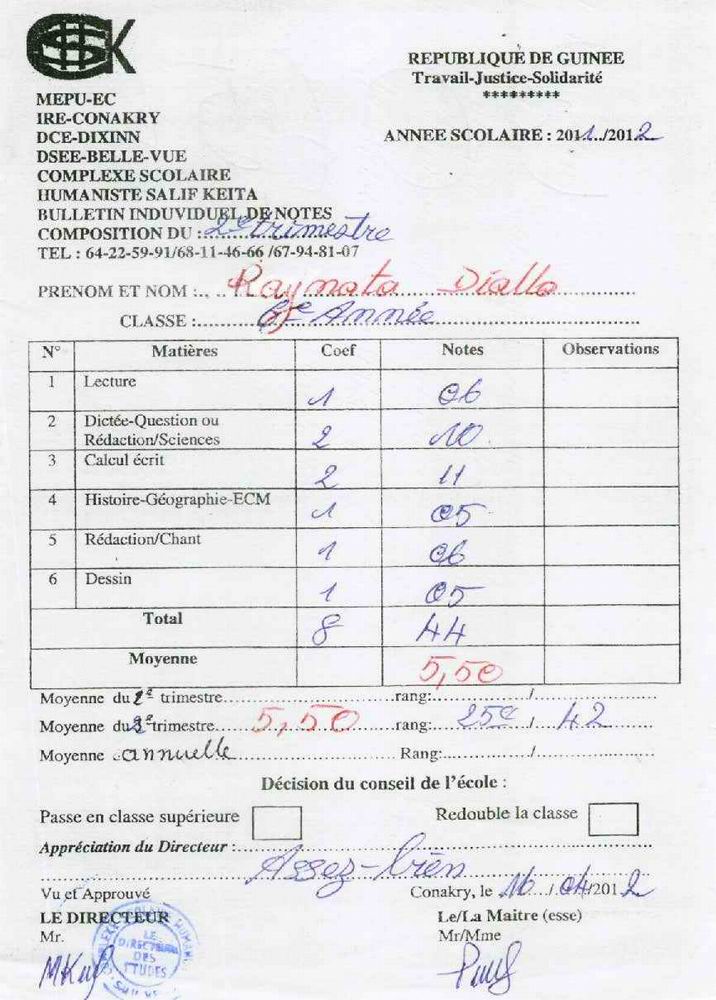 REPUBLIQUE DE GUINEE
Travail-Justice-Solidarité
*********
MEPU-EC
IRE-CONAKRY
DCE-DIXINN
ANNEE SCOLAIRE : 2011../2012
DSEE-BELLE-VUE
COMPLEXE SCOLAIRE
HUMANISTE SALIF KEITA
BULLETIN INDUVIDUEL DE NOTES
COMPOSITION DU : 2e trimestre
TEL : 64-22-59-91/68-11-46-66 /67-94-81-07
PRENOM ET NOM : Raynata Diallo
CLASSE : 6e Année
N° Matières Coef Notes Observations
1 Lecture 1 06
2 Dictée-Question ou Rédaction/Sciences 2 10
3 Calcul écrit 2 11
4 Histoire-Géographie-ECM 1 05
5 Rédaction/Chant 1 06
6 Dessin 1 05
Total 8 44
Moyenne 5,50
Moyenne du trimestre rang: /
Moyenne du trimestre 5,50 rang: 25e / 42
Moyenne annuelle Rang: /
Décision du conseil de l'école :
Passe en classe supérieure Redouble la classe
Appréciation du Directeur :
Assez-bien
Vu et Approuvé Conakry, le 16 / 04/2012
LE DIRECTEUR Le/La Maitre (esse)
Mr. Mr/Mme
LE DIRECTEUR DES ETUDES